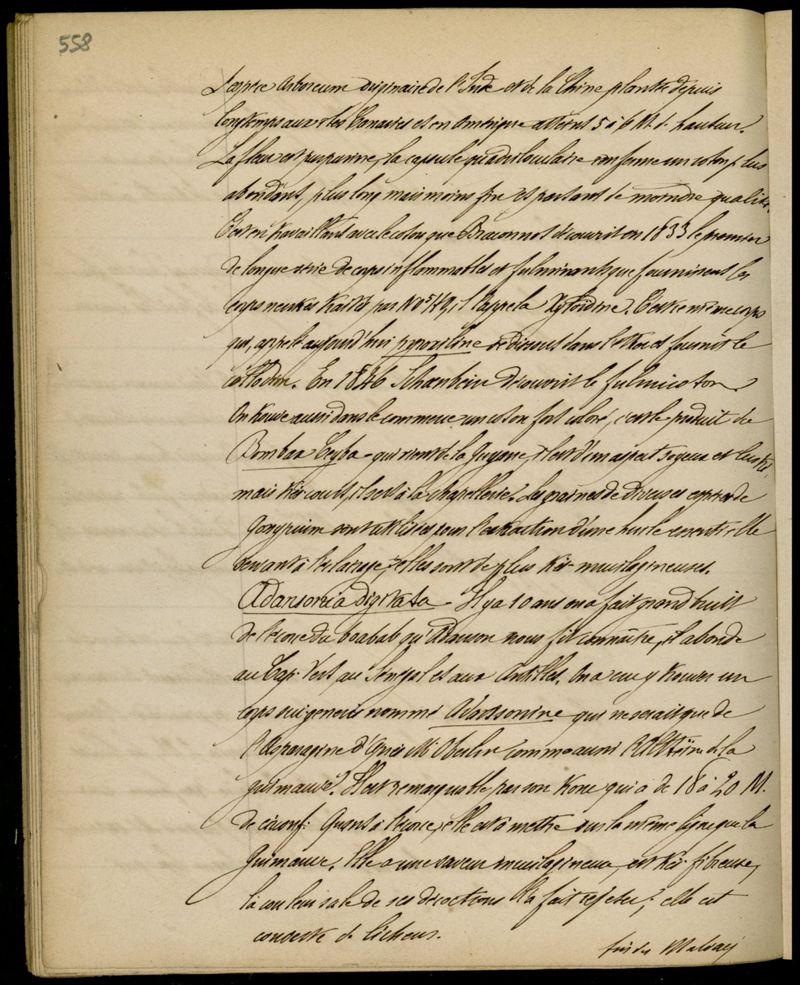 558
L'espèce arboreum originaire de l'Inde et de la Chine plantée depuis
longtemps aux îles Canaries et en Amérique atteint 5 à 6 M. d. hauteur.
La fleur est purpurine, la capsule quadriloculaire renferme un coton plus
abondant, plus long mais moins fin et partant de moindre qualité.
C'est en travaillant avec le coton que Braconnot découvrit en 1833 le premier
de longue série de corps inflammables et fulminants que fournissent les
corps neutres traités par il l'appela Xyloïdine. C'est ce même corps
qui, appelé aujourd'hui pyroxiline se dissout dans l'éther et fournit le
collodion. En 1846 Schoenbein découvrit le fulmicoton.
On trouve aussi dans le commerce un coton fort coloré, c'est le produit de
Bombax Ceyba qui vient de la Guyane, il est d'un aspect soyeux et lustré,
mais très court, il sert à la chapellerie. Les graines de diverses espèces de
Gossypium sont utilisées pour l'extraction d'une huile
servant à l'éclairage, elles sont de plus très mucilagineuses.
Adansonia digitata. Il y a 10 ans on a fait grand bruit
de l'écorce du boabab qu'Adanson nous fit connaître, il abonde
au Cap Vert, au Sénégal et aux Antilles. On a cru y trouver un
corps sui generis nommé Adansonine qui ne serait que de
l'Asparagine d'après Mr. comme aussi l'Althéine de la
guimauve. Il est remarquable par son tronc qui a de 18 à 20 M.
de circonf: Quant à l'écorce, elle est à mettre sur la même ligne que la
Guimauve. Elle a une saveur mucilagineuse, est très fibreuse,
la couleur sale de ses décoctions l'a fait rejeter; elle est
couverte de lichens.
fin des Malvacées